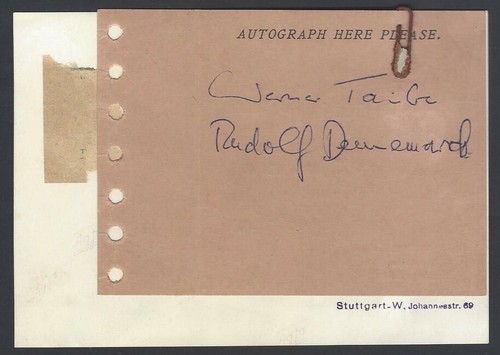 AUTOGRAPH HERE PLEASE.
Werner Taube
Rudolf Dennemarck
Stuttgart-W, Johannesstr. 69